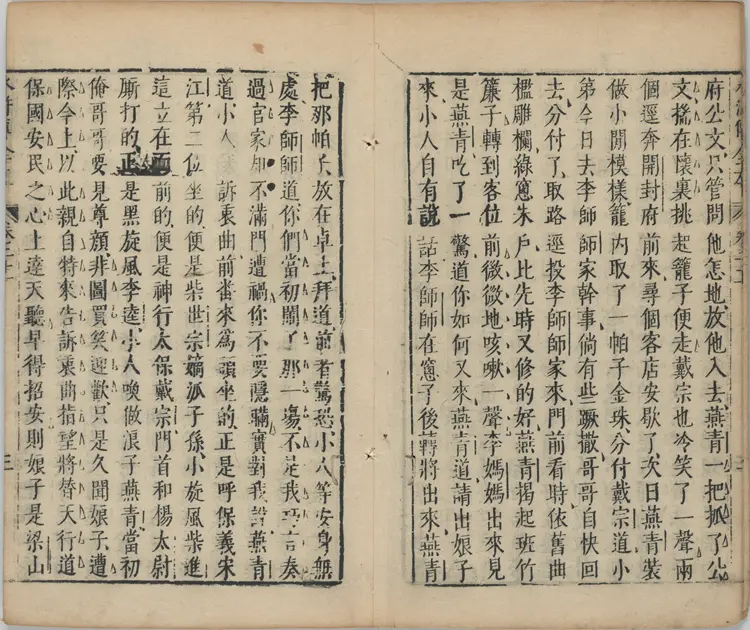 府公文只管問他怎地放他入去燕青一把抓了公
文揣在懷裏挑起籠子便走戴宗也冷笑了一聲兩
個逕奔開封府前來尋個客店安歇了次日燕青裝
做小閒模樣籠內取了一帕子金珠分付戴宗道小
弟今日去李師師家幹事倘有些蹶撒哥哥自快回
去分付了取路逕投李師師家來門前看時依舊曲
檻雕欄綠窻朱戶比先時又修的好燕青揭起班竹
簾子轉到客位前微微地咳嗽一聲李媽媽出來見
是燕青吃了一驚道你如何又來燕青道請出娘子
來小人自有說話李師師在窻子後轉將出來燕青
把那帕子放在卓上拜道前者驚恐小人等安身無
處李師師道你們當初鬧了那一塲不是我巧言奏
過官家却不滿門遭禍你不要隱瞞實對我說燕青
道小人訴衷曲前番來為頭坐的正是呼保義宋
江第二位坐的便是柴世宗嫡派子孫小旋風柴進
這立在面前的便是神行太保戴宗門首和楊太尉
厮打的正是黑旋風李逵小人喚做浪子燕青當初
俺哥哥要見尊顏非圖買笑迎歡只是久聞娘子遭
際今上以此親自特來告訴衷曲指望將替天行道
保國安民之心上達天聽早得招安則娘子是梁山